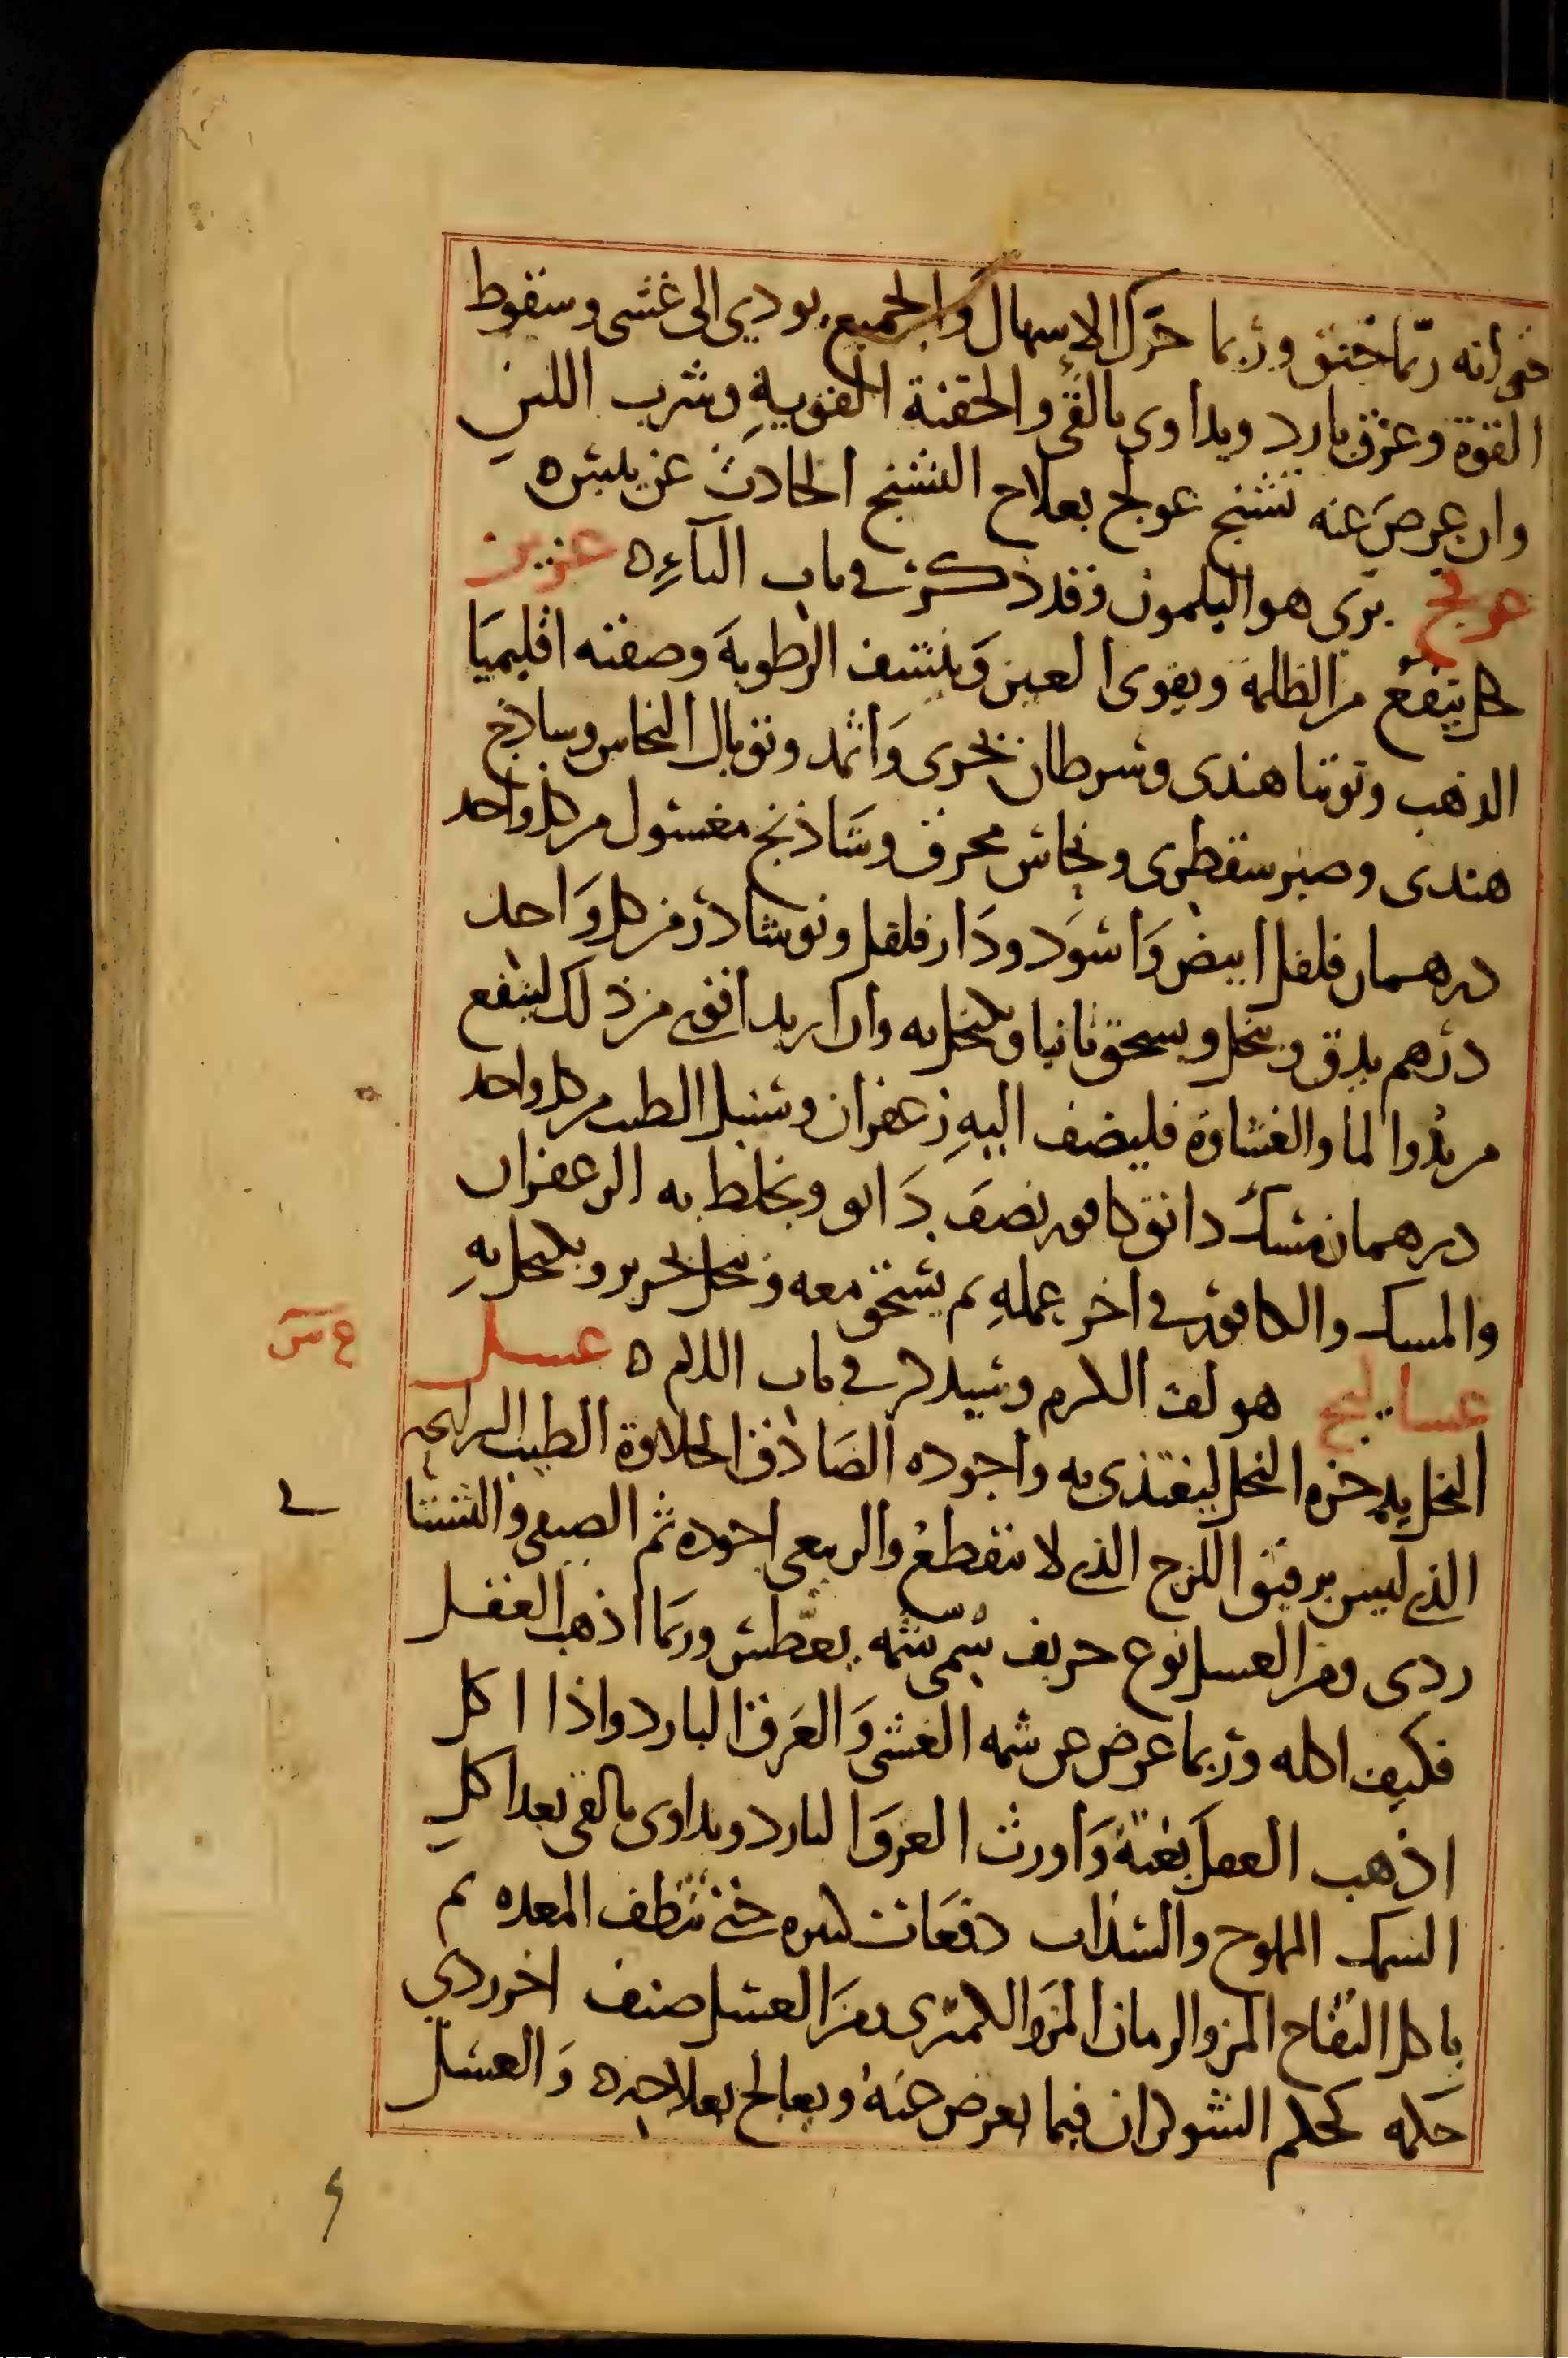 حتى انه ربّما خنق وربما حرّك الاسهال والجميع يودي الى غشى وسقوط
القوة وعرق بارد ويداوى بالقئ والحقنة القوية وشرب اللبن
وان عرض عنه تشنج عولج بعلاج التشنج الحادث عن يبس ه
برى هو اليلمون وقد ذكر في باب الباء ه عزيز
كحل ينفع من الظلمة ويقوى العين وينشف الرطوبة وصفته اقليميا
الذهب وتوتيا هندى وسرطان بحرى واثمد وتوبال النحاس وساذج
هندى وصبر سقطرى ونحاس محرق وشاذنج مغسول من كل واحد
درهمان فلفل ابيض واسود ودارفلفل ونوشادر من كل واحد
درهم يدق وينخل ويسحق ثانيا ويكتحل به وان اريد اقوى من ذلك لينفع
من بدو الما والغشاوة فليضف اليه زعفران وسنبل الطيب من كل واحد
درهمان مسك دانق كافور نصف دانق ويخلط به الزعفران
والمسك والكافور في اخر عمله ثم يسحق معه وينخل بحرير ويكتحل به
عساليج هو لف الكرم وسيذكر في باب اللام ه عسل
ع س
النحل يدخره النحل ليغتذى به واجوده الصادق الحلاوة الطيب الرايحه
الذي ليس برقيق اللزج الذي لا ينقطع والربيعى اجوده ثم الصيفى والشتا
ردى ومن العسل نوع حريف سمى شمه يعطّش وربما اذهب العقل
فكيف اكله وربما عرض عن شمه الغشى والعرق البارد واذا اكل
اذهب العقل بغتة واورث العرق البارد ويداوى بالقى بعد اكل
السمك المملوح والسذاب دفعات كثيره حتى تنظف المعده ثم
ياكل التفاح المز والرمان المز والكمثرى ومن العسل صنف اخر ردي
حكمه كحكم الشوكران فيما يعرض عنه ويعالج بعلاجه ه والعسل